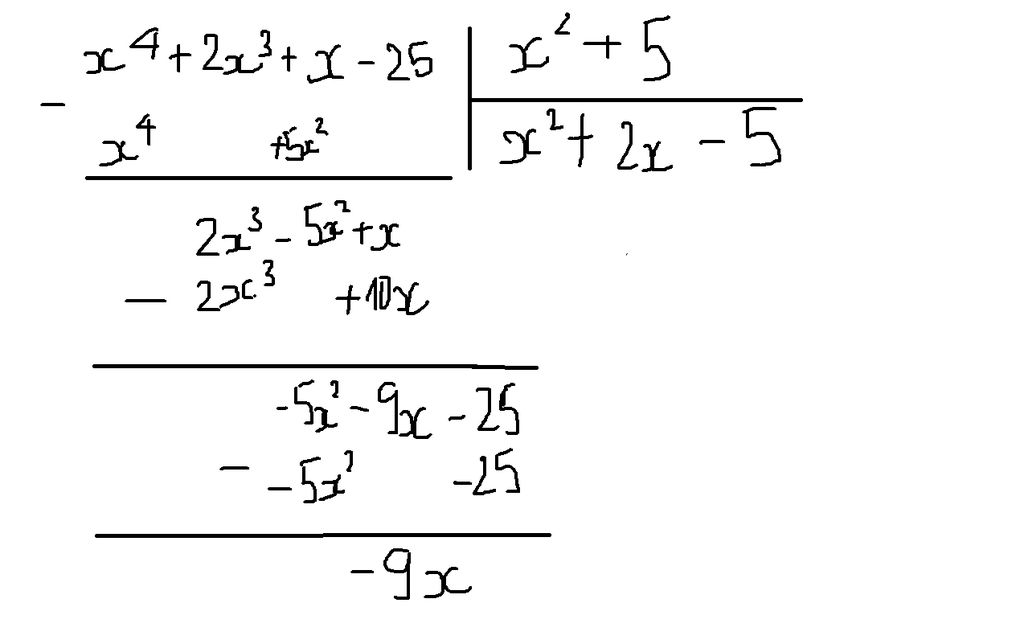 x⁴ + 2x³ + x - 25 | x² + 5
- x⁴ +5x² | x² + 2x - 5
2x³ - 5x² + x
- 2x³ +10x
-5x² - 9x - 25
- -5x² -25
-9x